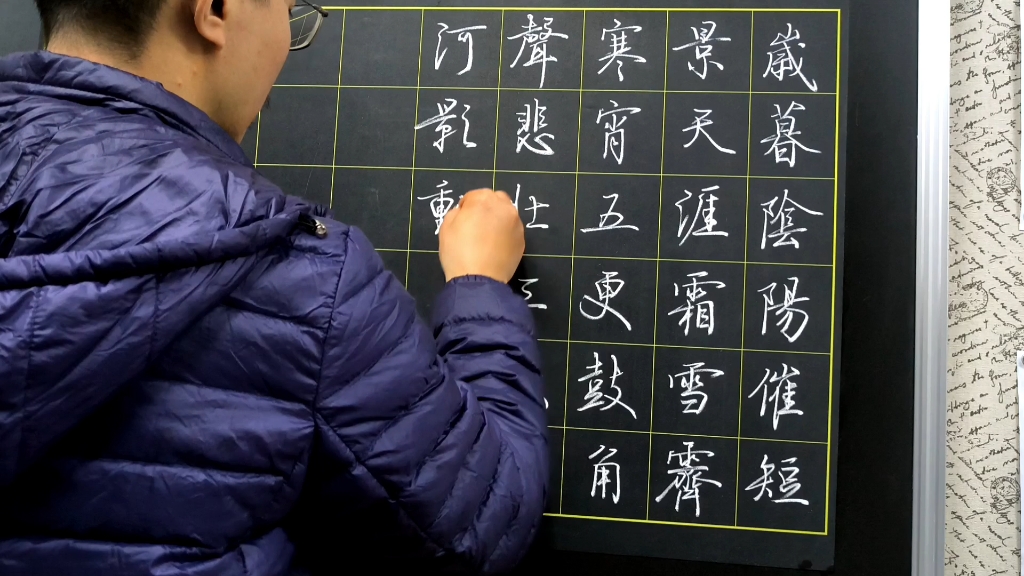 歲暮陰陽催短
景天涯霜雪霽
寒宵五更鼓角
聲悲壯
河影動